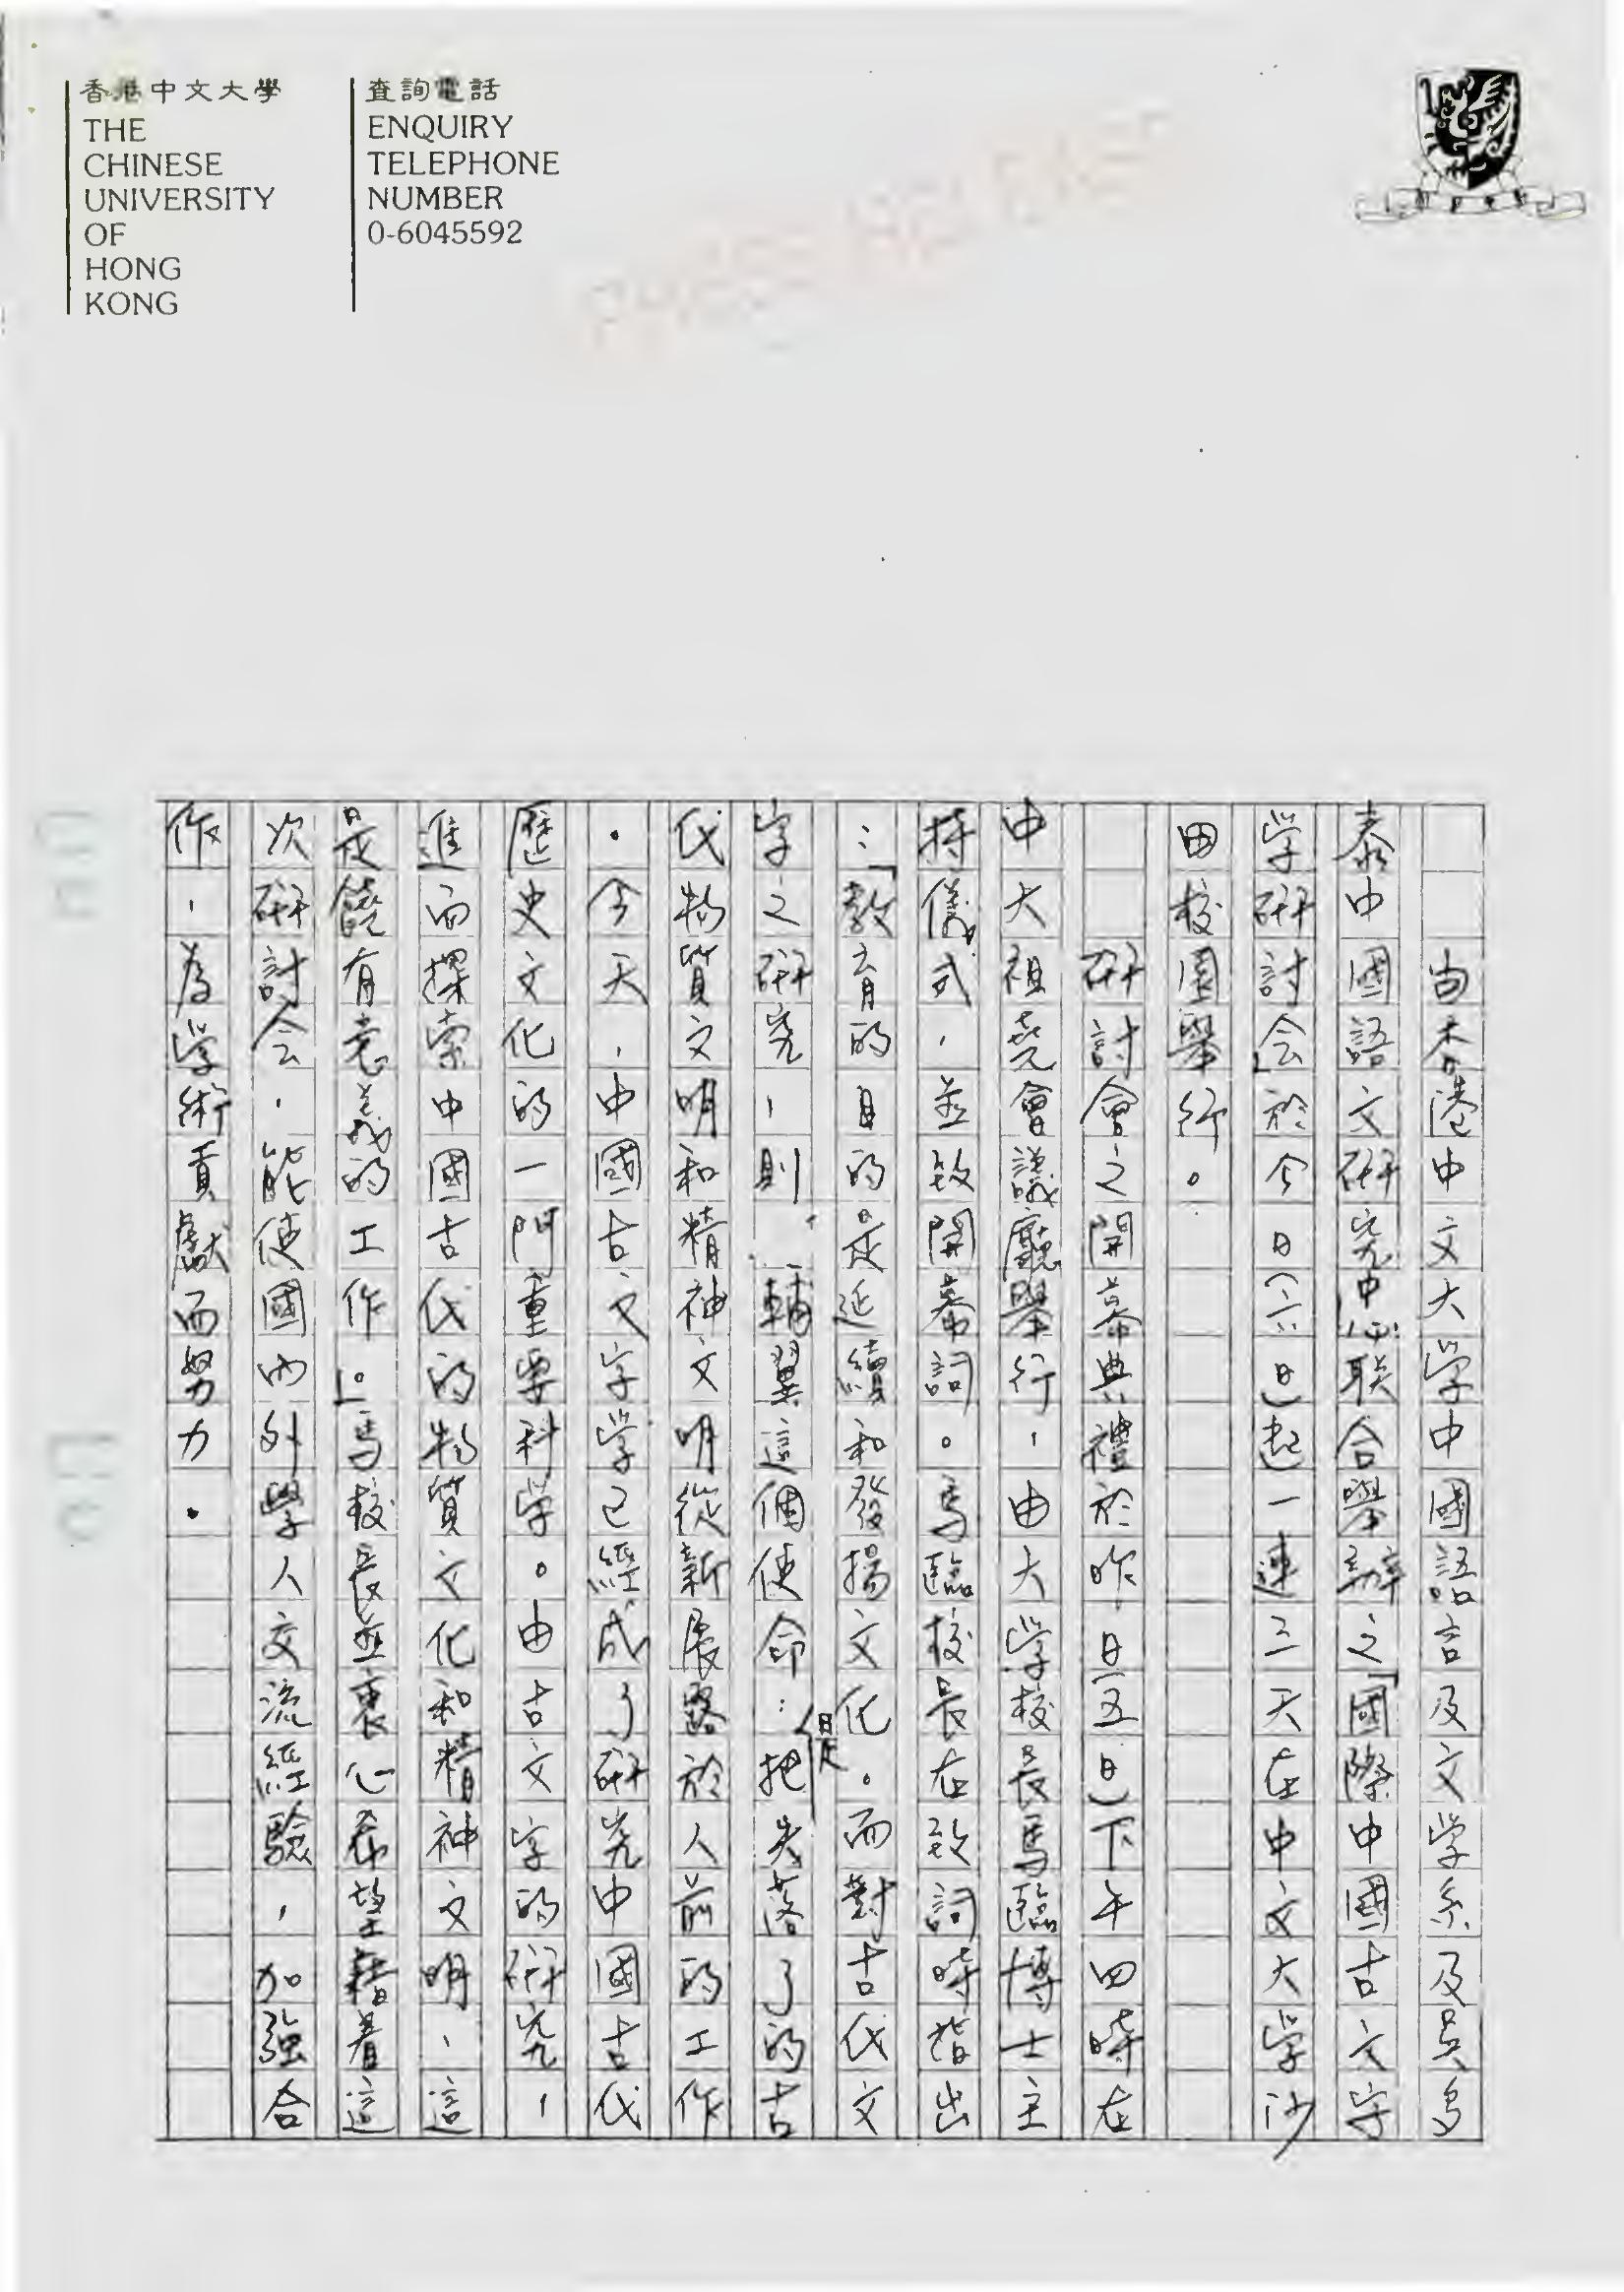 香港中文大學
THE
CHINESE
UNIVERSITY
OF
HONG
KONG
查詢電話
ENQUIRY
TELEPHONE
NUMBER
0-6045592
由香港中文大学中國語言及文学系及吳多
泰中國語文研究中心联合舉辦之「國際中國古文字
学研討会」於今日(六日)起一連三天在中文大学沙
田校園舉行。
研討會之開幕典禮於昨日(五日)下午四時在
中大祖堯會議廳舉行，由大学校長馬臨博士主
持儀式，並致開幕詞。馬臨校長在致詞時指出
：「教育的目的是延續和發揚文化。而對古代文
字之研究，則輔翼這個使命：是把失落了的古
代物質文明和精神文明從新展露於人前的工作
。今天，中國古文字学已經成了研究中國古代
歷史文化的一門重要科学。由古文字的研究，
進而探索中國古代的物質文化和精神文明，這
是饒有意義的工作」。馬校長並衷心希望藉着這
次研討会，能使國內外學人交流經驗，加強合
作，為学術貢獻而努力。